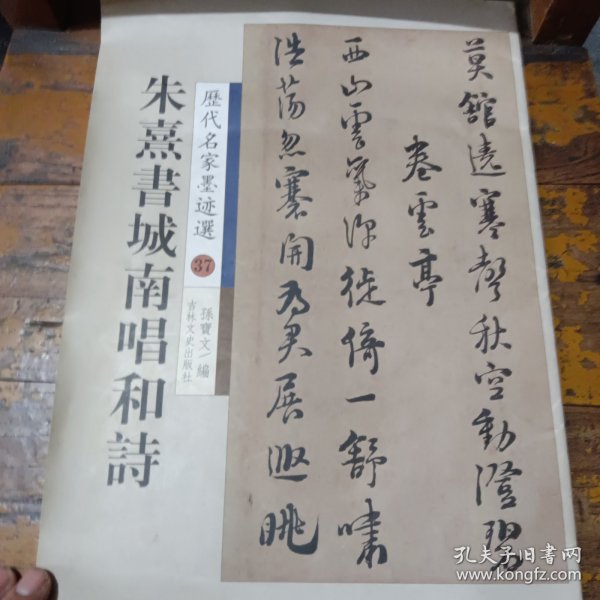 朱熹書城南唱和詩
歷代名家墨迹選
37
孫寶文/編
吉林文史出版社
莫館遶寒聲秋空動澄碧
卷雲亭
西山雲氣深徙倚一舒嘯
浩蕩忽褰開為君展遐眺
孔夫子旧书网
www.kongfz.com